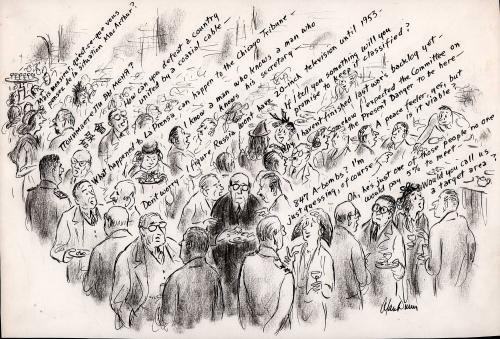 qu'est-ce-que vous
pensez de la situation MacArthur?
Transmitters? By Moses?
defeat a country
united by a coaxial cable —
What happened to La Prensa, can happen to the Chicago Tribune —
I knew a man who knows a man who
knows his secretary —
Don't worry. I figure Russia won't have 20-inch television until 1953 —
If I tell you something will you
promise to keep it classified?
Why, we haven't finished last war's backlog yet —
Somehow I expected the Committee on
Present Danger to be here —
A peace feeler, yes, but
is it virile?
847 A-bombs? I'm
just guessing, of course —
Oh, he's just one of those people no one
would pay 5% to meet —
Would you call us
a target area?
Alan Dunn